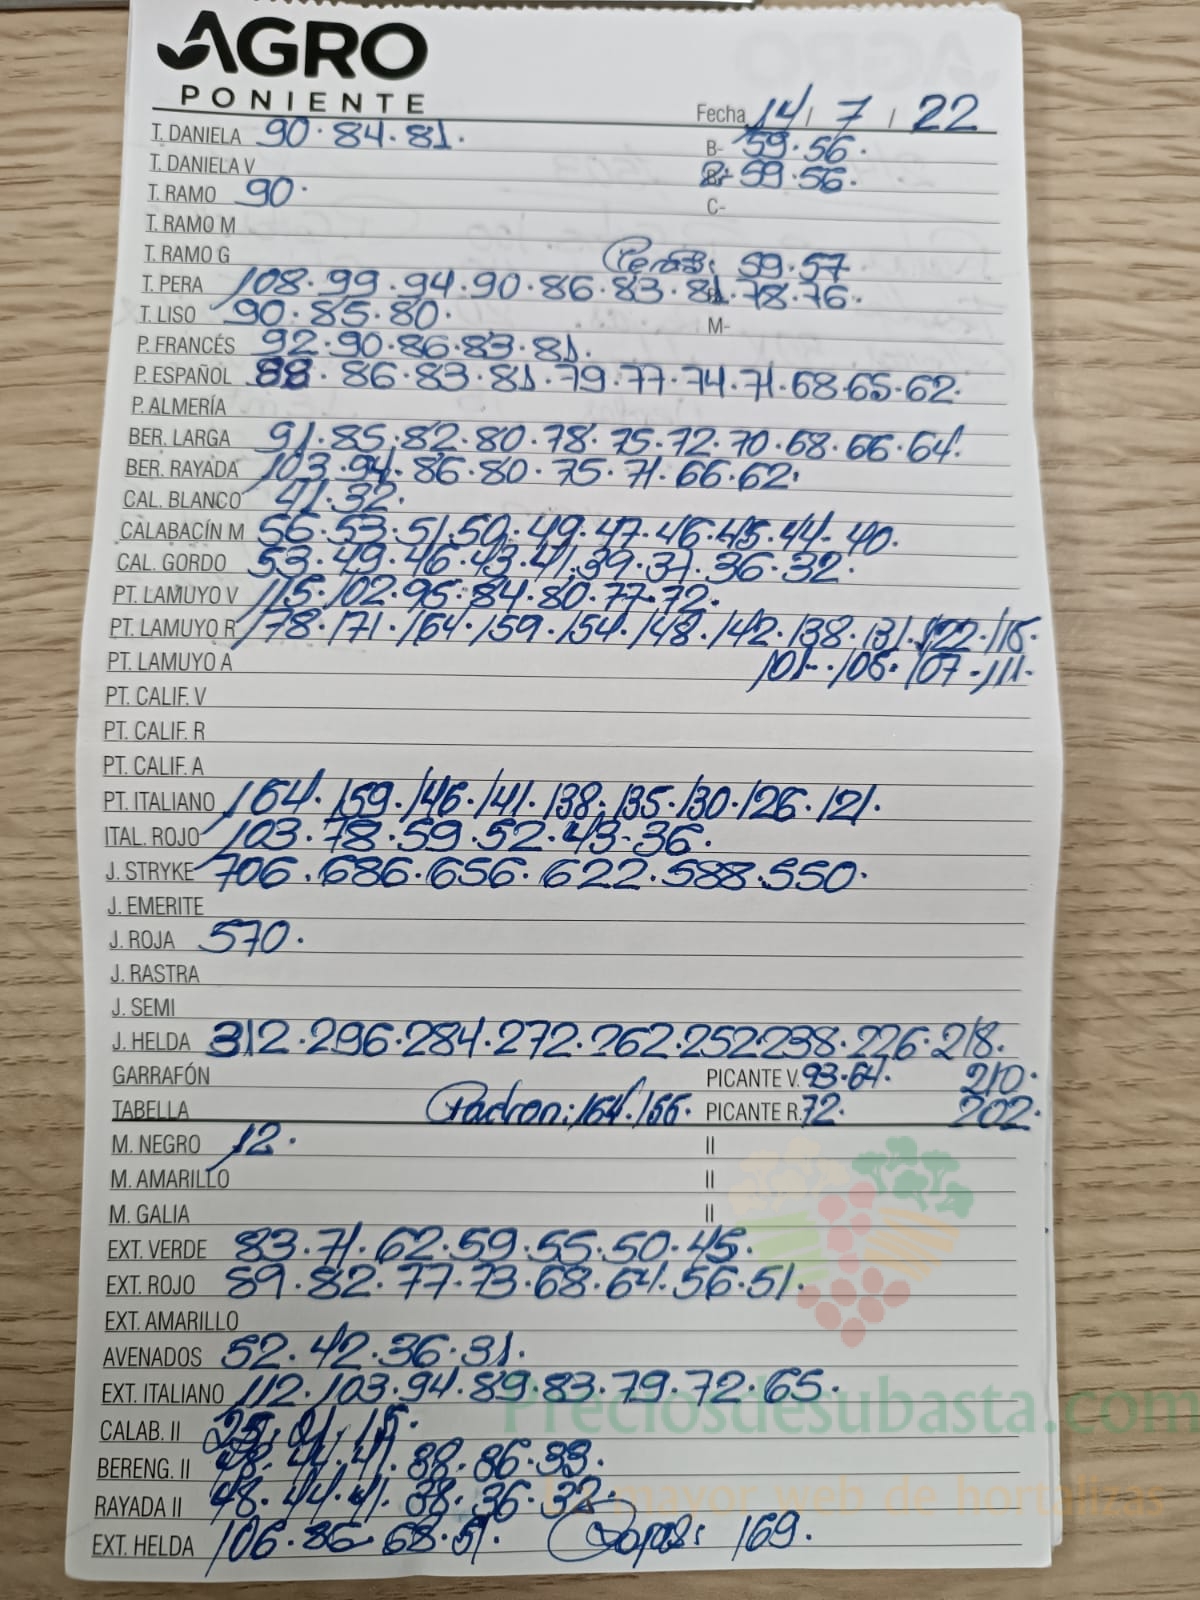 AGRO
PONIENTE
Fecha 14 / 7 / 22
T. DANIELA 90. 84. 81. B- 59. 56.
T. DANIELA V 59. 56.
T. RAMO 90. C-
T. RAMO M
T. RAMO G 59. 57
T. PERA 108. 99. 94. 90. 86. 83. 81. 78. 76.
T. LISO 90. 85. 80. M-
P. FRANCÉS 92. 90. 86. 83. 81.
P. ESPAÑOL 88. 86. 83. 81. 79. 77. 74. 71. 68. 65. 62.
P. ALMERÍA
BER. LARGA 91. 85. 82. 80. 78. 75. 72. 70. 68. 66. 64.
BER. RAYADA 103. 94. 86. 80. 75. 71. 66. 62.
CAL. BLANCO 41. 32.
CALABACÍN M 56. 53. 51. 50. 49. 47. 46. 45. 44. 40.
CAL. GORDO 53. 49. 46. 43. 41. 39. 37. 36. 32.
PT. LAMUYO V 115. 102. 95. 84. 80. 77. 72.
PT. LAMUYO R 178. 171. 164. 159. 154. 148. 142. 138. 131. 122. 115.
PT. LAMUYO A 101. 105. 107. 111.
PT. CALIF. V
PT. CALIF. R
PT. CALIF. A
PT. ITALIANO 164. 159. 146. 141. 138. 135. 130. 126. 121.
ITAL. ROJO 103. 78. 59. 52. 43. 36.
J. STRYKE 706. 686. 656. 622. 588. 550.
J. EMERITE
J. ROJA 570.
J. RASTRA
J. SEMI
J. HELDA 312. 296. 284. 272. 262. 252 238. 226. 218.
GARRAFÓN PICANTE V. 93. 64. 210.
TABELLA Padron: 164. 156. PICANTE R. 72. 202.
M. NEGRO 12. II
M. AMARILLO II
M. GALIA II
EXT. VERDE 83. 71. 62. 59. 55. 50. 45.
EXT. ROJO 89. 82. 77. 73. 68. 64. 56. 51.
EXT. AMARILLO
AVENADOS 52. 42. 36. 31.
EXT. ITALIANO 112. 103. 94. 89. 83. 79. 72. 65.
Preciosdesubasta.com
CALAB. II 25. 21. 15.
BERENG. II 48. 44. 41. 38. 36. 33.
RAYADA II 48. 44. 41. 38. 36. 32.
la mayor web de hortalizas
EXT. HELDA 106. 86. 68. 51. 169.